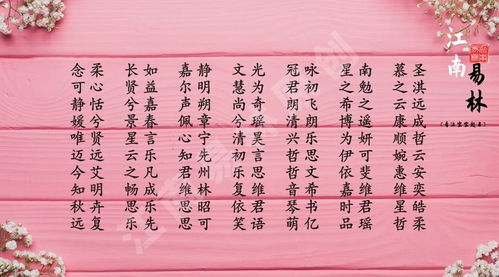 江南
易林
圣淇远成哲云安奕皓柔
慕之云康顺婉惠维星哲
南勉之遥妍可斐维君瑶
星之希博为伊依嘉时品
咏初飞朗乐思文希书亿
冠君朗清兴哲哲音琴萌
光为奇瑶昊言思维君语
文慧尚兮清初乐复依笑
静明朔章宁先州林昭可
嘉尔声佩心知君维思思
如益嘉春言乐凡成乐先
长贤兮景星云之畅思乐
柔心恬兮贤远艾明卉复
念可静媛唯迈今知秋远